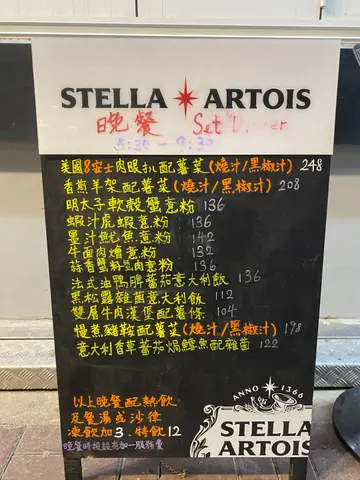 STELLA ARTOIS
晚餐 Set Dinner
5:30 - 9:30
美國8安士肉眼扒配薯菜(燒汁/黑椒汁) 248
香煎羊架配薯菜(燒汁/黑椒汁) 208
明太子軟殼蟹意粉 136
蝦汁虎蝦意粉 136
墨汁魷魚意粉 142
牛面肉燴意粉 132
蒜香蟹料肉意粉 136
法式油鴨脾蕃茄意大利飯 136
黑松露雜菌意大利飯 112
雙層牛肉漢堡配薯條 104
慢煮豬鞍配薯菜(燒汁/黑椒汁) 198
意大利香草蕃茄焗鱈魚配雜菌 122
以上晚餐配熱飲
及餐湯或沙律
凍飲加3 特飲12
晚餐時段設有加一服務費
ANNO 1366
STELLA
ARTOIS